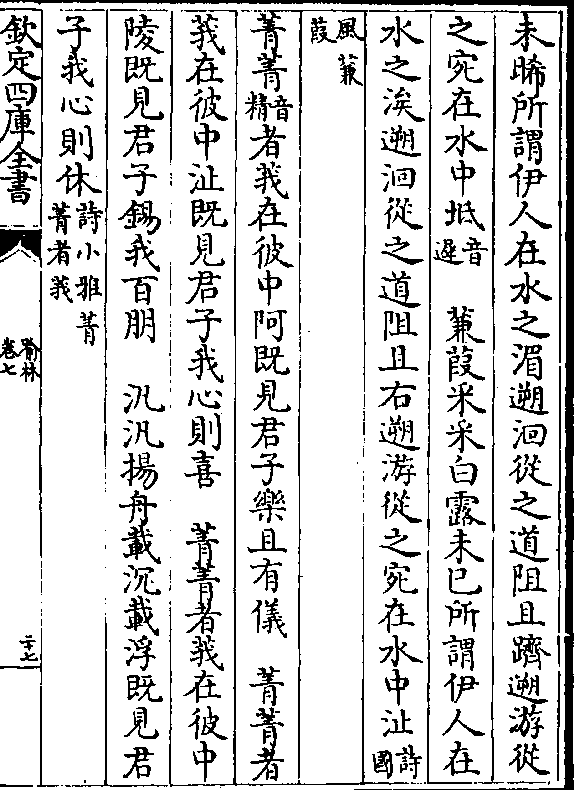 未晞所謂伊人在水之湄遡洄從之道阻且躋遡游從
之宛在水中坻音遲　蒹葭采采白露未已所謂伊人在
水之涘遡洄從之道阻且右遡游從之宛在水中沚詩國
風蒹葭
菁菁音精者莪在彼中阿既見君子樂且有儀　菁菁者
莪在彼中沚既見君子我心則喜　菁菁者莪在彼中
陵既見君子錫我百朋　汎汎揚舟載沉載浮既見君
子我心則休詩小雅菁菁者莪
欽定四庫全書
喻林
卷七
二十七